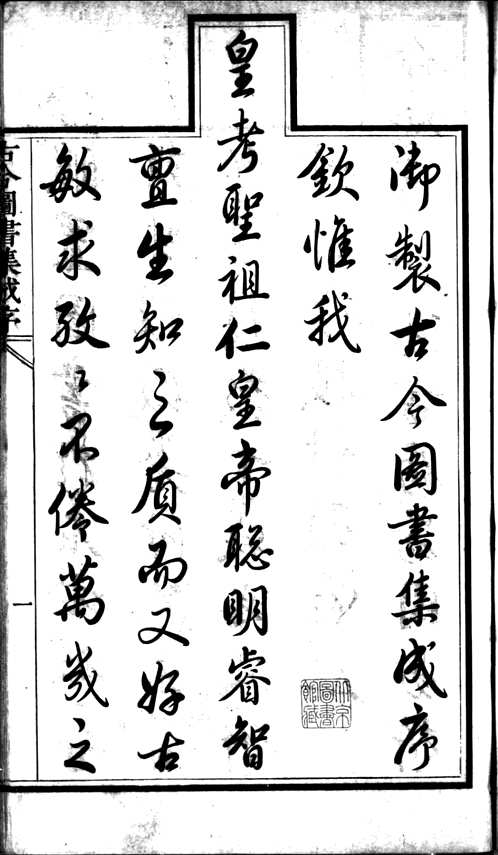 御製古今圖書集成序
欽惟我
皇考聖祖仁皇帝聰明睿智
亶生知之質而又好古
敏求孜〻不倦萬幾之
古今圖書集成序
一